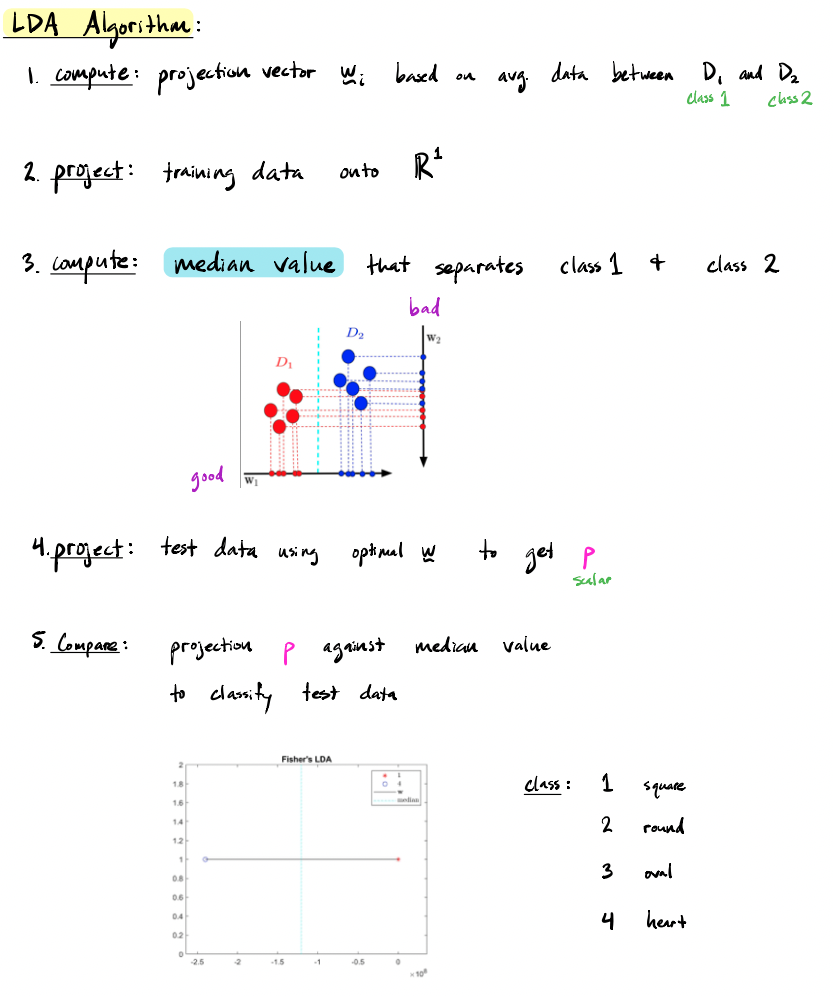 LDA Algorithm:
1. compute: projection vector w_i based on avg. data between D_1 and D_2
class 1 class 2
2. project: training data onto ℝ^1
3. compute: median value that separates class 1 & class 2
bad
D_2
w_2
D_1
good
w_1
4. project: test data using optimal w to get p
scalar
5. Compare: projection p against median value
to classify test data
Fisher's LDA
2
1.8
1.6
1.4
1.2
1
0.8
0.6
0.4
0.2
0
1
4
w
median
-2.5 -2 -1.5 -1 -0.5 0
class: 1 square
2 round
3 oval
4 heart